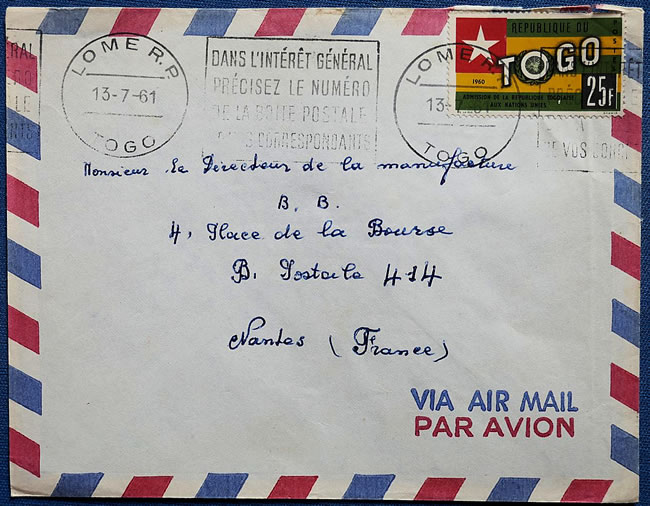 LOME R.P.
13-7-61
TOGO
DANS L'INTÉRÊT GÉNÉRAL
PRÉCISEZ LE NUMÉRO
DE LA BOITE POSTALE
CORRESPONDANTS
LOME
13
TOGO
DE VOS CORR
REPUBLIQUE DU
TOGO
1960
ADMISSION DE LA REPUBLIQUE TOGOLAISE
AUX NATIONS UNIES
25F
Monsieur Le Directeur de la manufacture
B. B.
4, Place de la Bourse
B. Postale 414
Nantes (France)
VIA AIR MAIL
PAR AVION